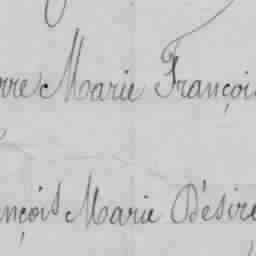 rre Marie François
nçois Marie Désiré